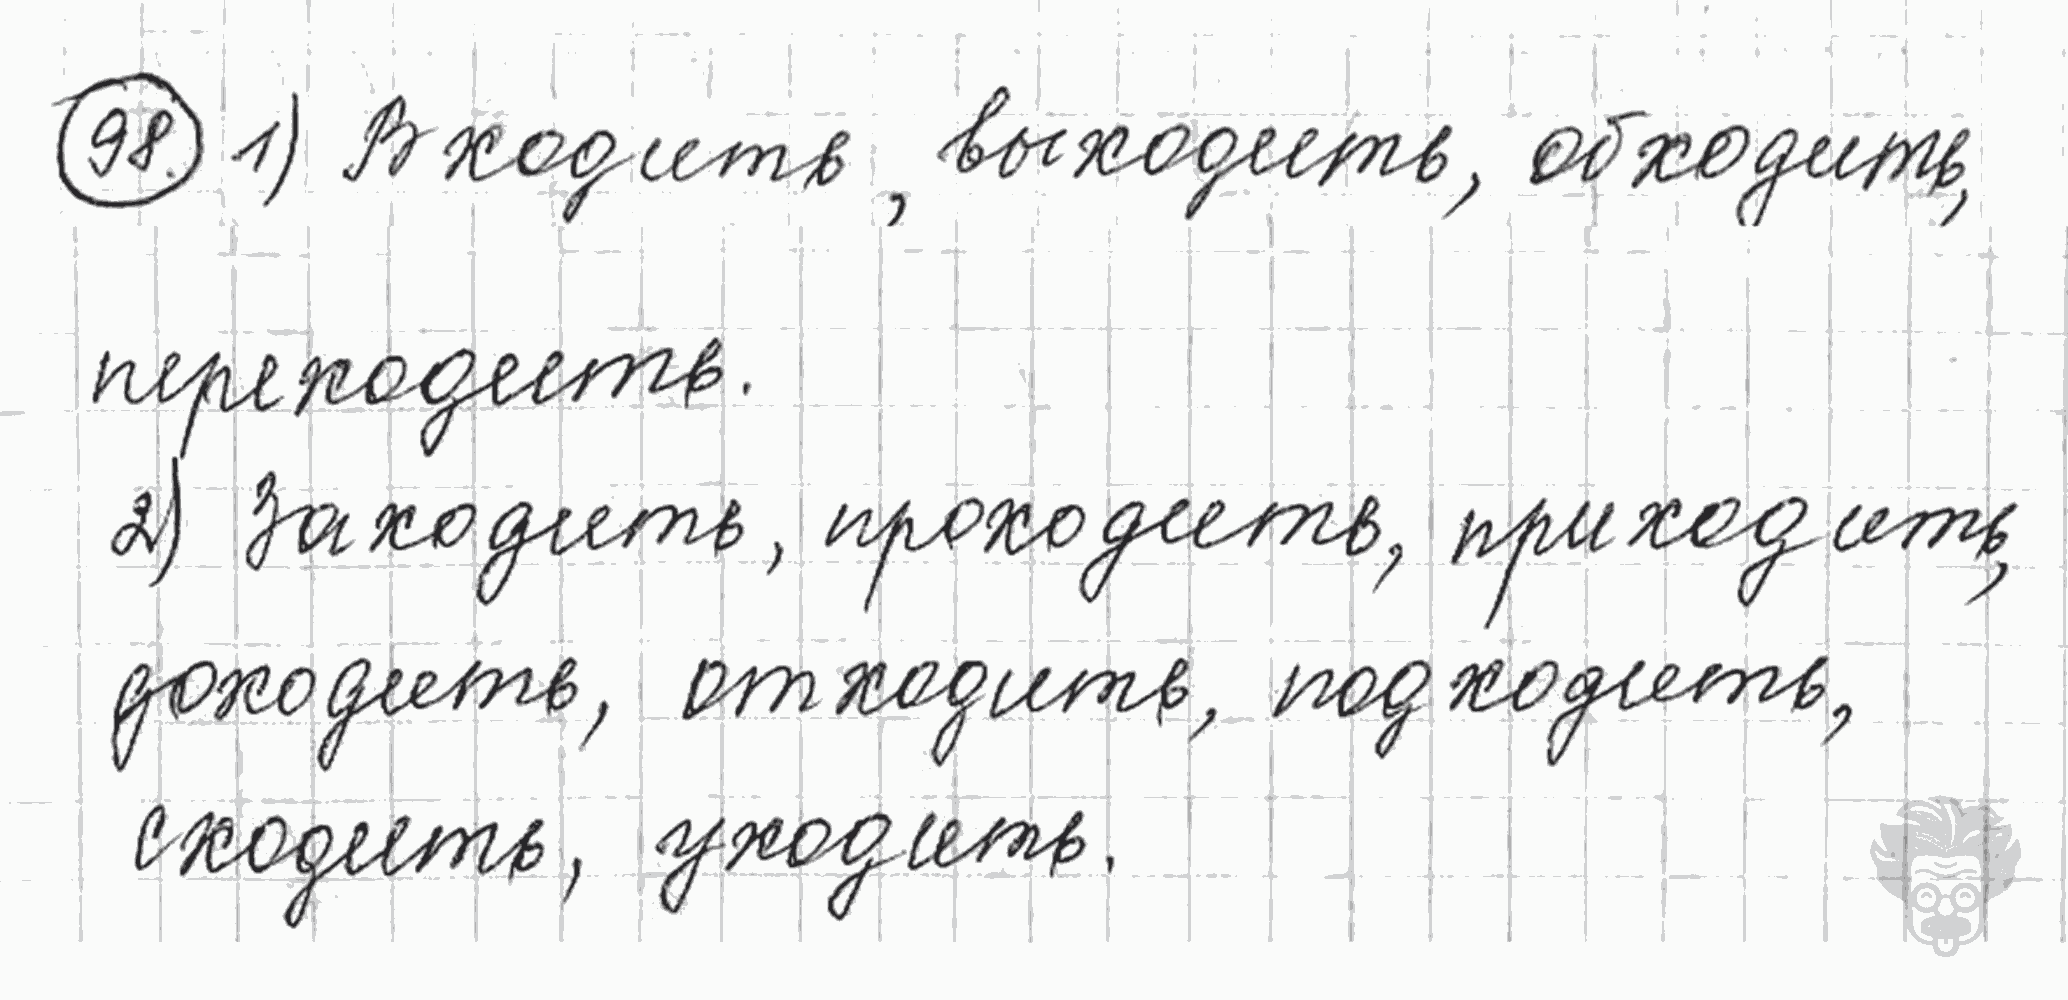 98. 1) Входить, выходить, обходить,
переходить.
2) Заходить, проходить, приходить,
доходить, отходить, подходить,
сходить, уходить.